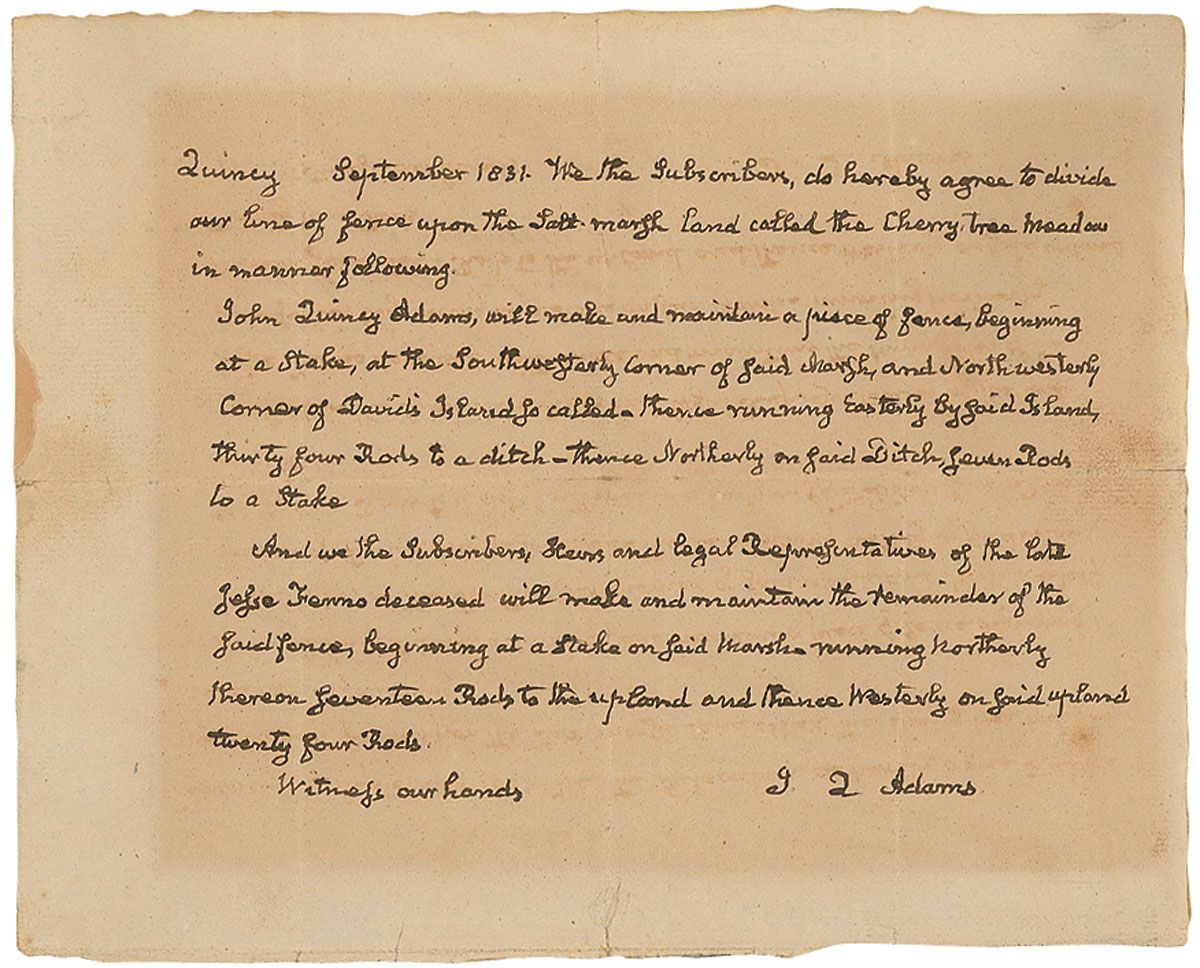 Quincy September 1831. We the Subscribers, do hereby agree to divide
our line of fence upon the Salt-marsh land called the Cherry-tree Meadow
in manner following.
John Quincy Adams, will make and maintain a piece of fence, beginning
at a Stake, at the Southwesterly Corner of said Marsh, and Northwesterly
Corner of David's Island so called - thence running Easterly by said Island,
thirty four Rods to a ditch - thence Northerly on said Ditch, seven Rods
to a Stake
And we the Subscribers, Heirs and legal Representatives of the late
Jesse Fenno deceased will make and maintain the remainder of the
said fence, beginning at a Stake on said Marsh - running Northerly
thereon seventeen Rods to the upland and thence Westerly on said upland
twenty four Rods.
Witness our hands J Q Adams